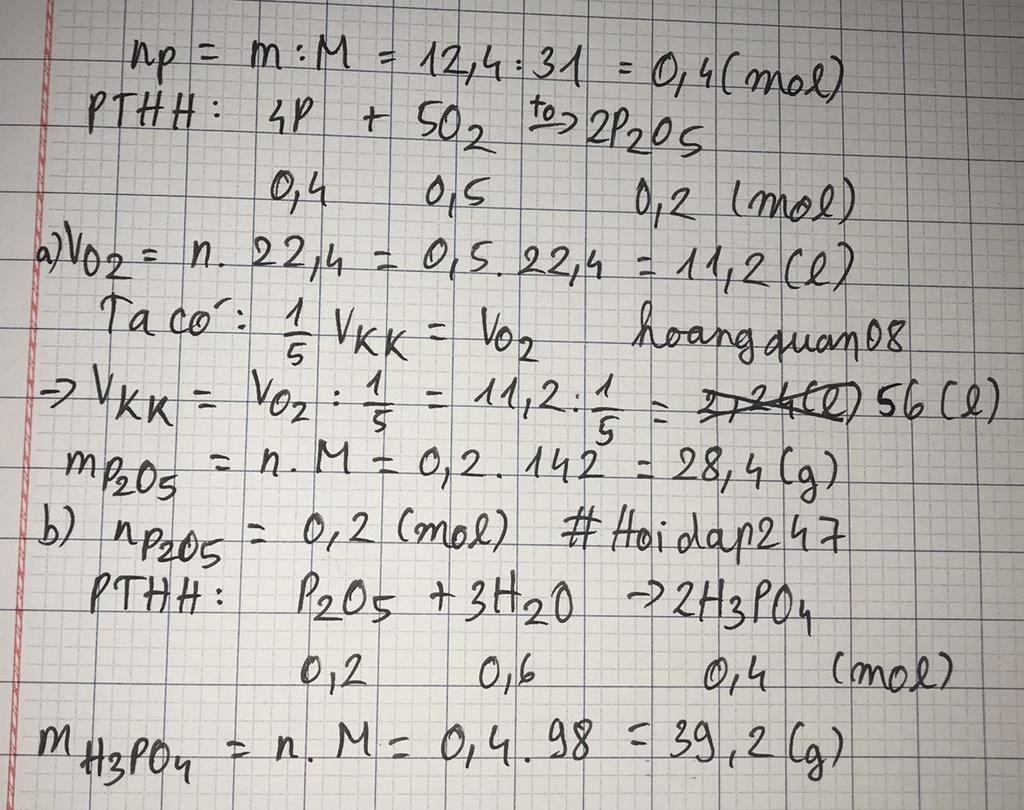 np = m : M = 12,4 : 31 = 0,4 (mol)
PTHH : 4P + 5O2 to→ 2P2O5
0,4 0,5 0,2 (mol)
a) VO2 = n. 22,4 = 0,5. 22,4 = 11,2 (l)
Ta có : 1/5 VKK = VO2 hoangquan08
→ VKK = VO2 : 1/5 = 11,2 : 1/5 = 2,24(l) 56 (l)
mP2O5 = n. M = 0,2. 142 = 28,4 (g)
b) nP2O5 = 0,2 (mol) #Hoidap247
PTHH : P2O5 + 3H2O → 2H3PO4
0,2 0,6 0,4 (mol)
mH3PO4 = n. M = 0,4. 98 = 39,2 (g)